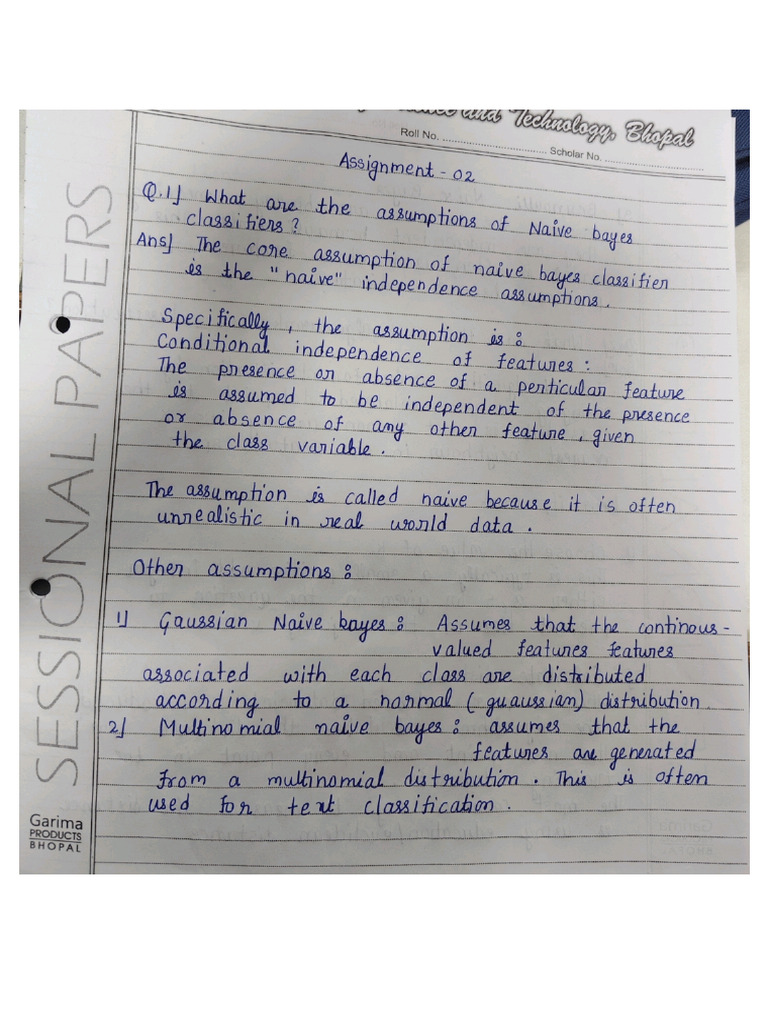 and Technology, Bhopal
Roll No. ........................ Scholar No. ........................
Assignment - 02
Q.1] What are the assumptions of Naive bayes
classifiers?
Ans] The core assumption of naive bayes classifier
is the "naive" independence assumptions.
Specifically, the assumption is :
Conditional independence of features :
The presence or absence of a perticular feature
is assumed to be independent of the presence
or absence of any other feature, given
the class variable.
The assumption is called naive because it is often
unrealistic in real world data.
Other assumptions :
1] Gaussian Naive bayes : Assumes that the continous-
valued features features
associated with each class are distributed
according to a normal (guaussian) distribution.
2] Multinomial naive bayes : assumes that the
features are generated
from a multinomial distribution. This is often
used for text classification.
SESSIONAL PAPERS
Garima
PRODUCTS
BHOPAL